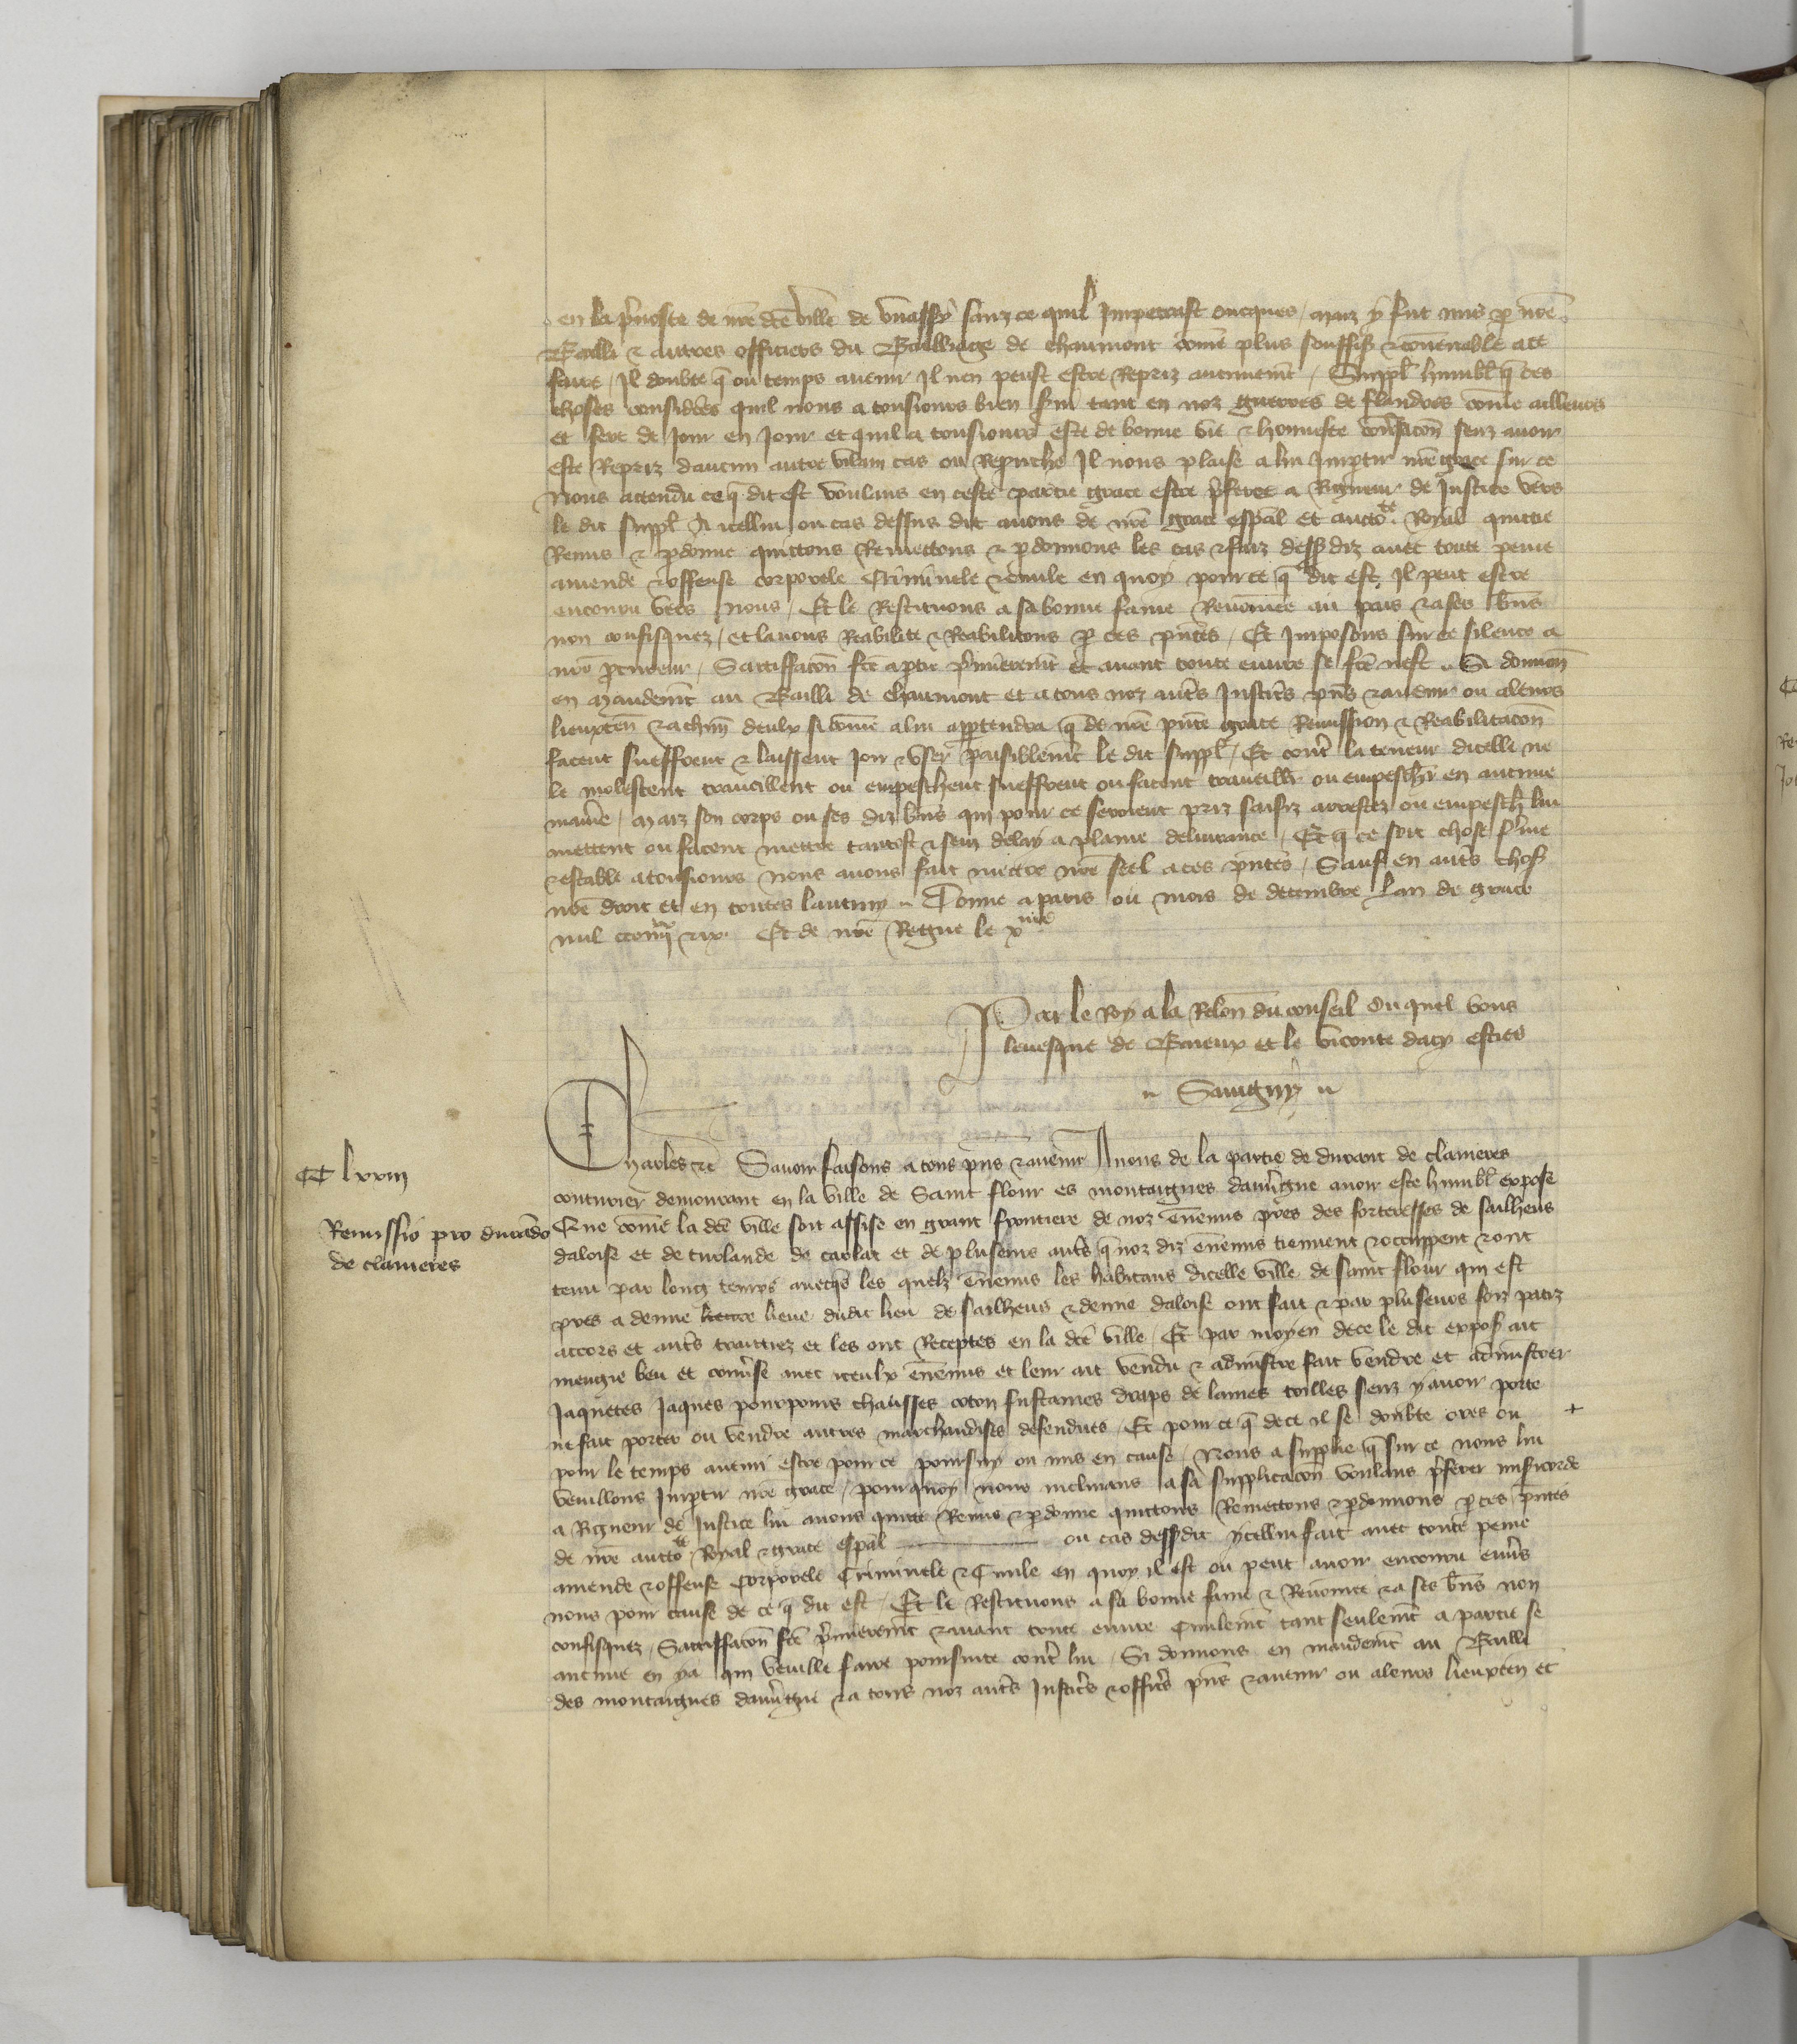 en la p̃uoste de nr̃e dc̃e ville de Vuassy sanz ce quil Impetrast oncques / maiz y fut mis ꝑ nr̃e
Bailli & autres officiers du Bailliage de chaumont com̃e plus souffis̃ & conuenable a ce
faire / Il doubte q̃ ou temps auenir Il nen peust estre Repriz aucunemẽt / Suppl̃ humbl̃ q̃ ces
choses considerees quil nous a tousiours bien s̃ui tant en noz guerres de flandres com̃e ailleurs
et sert de Jour en Jour et quil a tousiours este de bonne vie & honneste conũsac̃on senz auoir
este Repriz daucun autre vilain cas ou Reprouche Il nous plaise a lui Imꝑtir nr̃e grace sur ce
Nous attendu ce q̃ dit est voulans en ceste partie grace estre p̃feree a Rigueur de Justice vers
le dit suppl̃ A icellui ou cas dessus dit auons de nr̃e grace esp̃al et auctote Royal quictie
Remis & ꝑdonne quictons Remettons & ꝑdonnons les cas & faiz dess̃ diz auec toute peine
amende & offense corporele Criminele & ciuile en quoy pour ce q̃ dit est Il peut estre
encouru vers nous / Et le Restituons a sa bonne fame Renom̃ee au pais & a ses bñs
non confisquez / et lauons Reabilite & Reabilitons ꝑ ces p̃ntes / Et Imposons sur ce silence a
nr̃e ꝓcureur / Satisfac̃on fc̃e a ꝑtie p̃mieremẽt et auant toute euure se fc̃e nest Si donnons
en mandemẽt au Bailli de chaumont et a tous noz aut̃s Justic̃s p̃ns & auenir ou a leurs
lieuxten̄ & a chũn deulx si com̃e a lui apꝑtendra q̃ de nr̃e p̃nte grace Remission & Reabilitac̃on
facent sueffrent & laissent Joir & vser paisiblemẽt le dit suppl̃ / Et cont̃ la teneur dicelle ne
le molestent trauaillent ou empeschent sueffrent ou facent trauaill̃r ou empesch̃r en aucune
manie̾ / maiz son corps ou ses diz bñs qui pour ce seroient priz saisiz arrestez ou empesch̃ lui
mettent ou facent mettre tantost & senz delay a plaine deliurance / Et q̃ ce soit chose f̃me
& estable a tousiours nous auons fait mettre nr̃e seel a ces p̃ntes / Sauf en aut̃s chos̃
nr̃e droit et en toutes lautruy Donne a paris ou mois de decembre Lan de grace
mil ccc iiiixx & ix Et de nr̃e Regne le xme
Par le Roy a la Relon̄ du conseil Ou quel vous
leuesque de Baieux et le viconte dacy estiez
Sauigny
Charles &c̃ Sauoir faisons a tous p̃ns & auenir A nous de la partie de durant de clauieres
cousturier demourant en la ville de Saint flour es montaignes dauũgne auoir este humbl̃ expose
Que com̃e la dc̃e ville soit assise en grant frontiere de noz enñemis pres des forteresses de sailhens
daloise et de turlande de carlat et de pluseurs aut̃s q̃ noz diz enñemis tiennent & occuppent & ont
tenu par long temps auecq̃s les quelz enñemis les habitans dicelle ville de saint flour qui est
pres a demie lieue dudit lieu de sailhens & demie daloise ont fait & par pluseurs foiz patiz
accors et aut̃s traittiez et les ont Receptes en la dc̃e ville / Et par moyen de ce le dit expos̃ ait
mengie beu et conũse auec iceulx enñemis et leur ait vendu & administre fait vendre et administrer
Jaquetes Jaques pourpoins chausses coton fustaines draps de laines toilles senz y auoir porte
ne fait porter ou vendre autres marchandises defendues / Et pour ce q̃ de ce il se doubte ores ou +
pour le temps auenir estre pour ce poursuy ou mis en cause / Nous a supplie q̃ sur ce nous lui
veuillons Imꝑtir nr̃e grace / pour quoy nous inclinans a sa supplicac̃on voulans p̃ferer misericorde
a Rigueur de Justice lui auons quicte Remis & ꝑdonne quictons Remettons & ꝑdonnons ꝑ ces p̃ntes
de nr̃e auctote Royal & grace esp̃al ou cas dess̃ dit ycellui fait auec toute peine
amende & offense Corporele Criminele & Ciuile en quoy il est ou peut auoir encouru enũs
nous pour cause de ce q̃ dit est / Et le Restituons a sa bonne fame & Renom̃ee & a ses bñs non
confisquez / Satisfac̃on fc̃e p̃mieremẽt & auant toute euure Ciuilemẽt tant seulemẽt a partie se
aucune en ya qui veuille faire poursuite cont̃ lui / Si donnons en mandemẽt au Bailli
des montaignes dauũgne & a tous noz aut̃s Justic̃s & offic̃s p̃ns & auenir ou a leurs lieuxten̄ et
lxxiii
Remissio pro durando
de clauieres